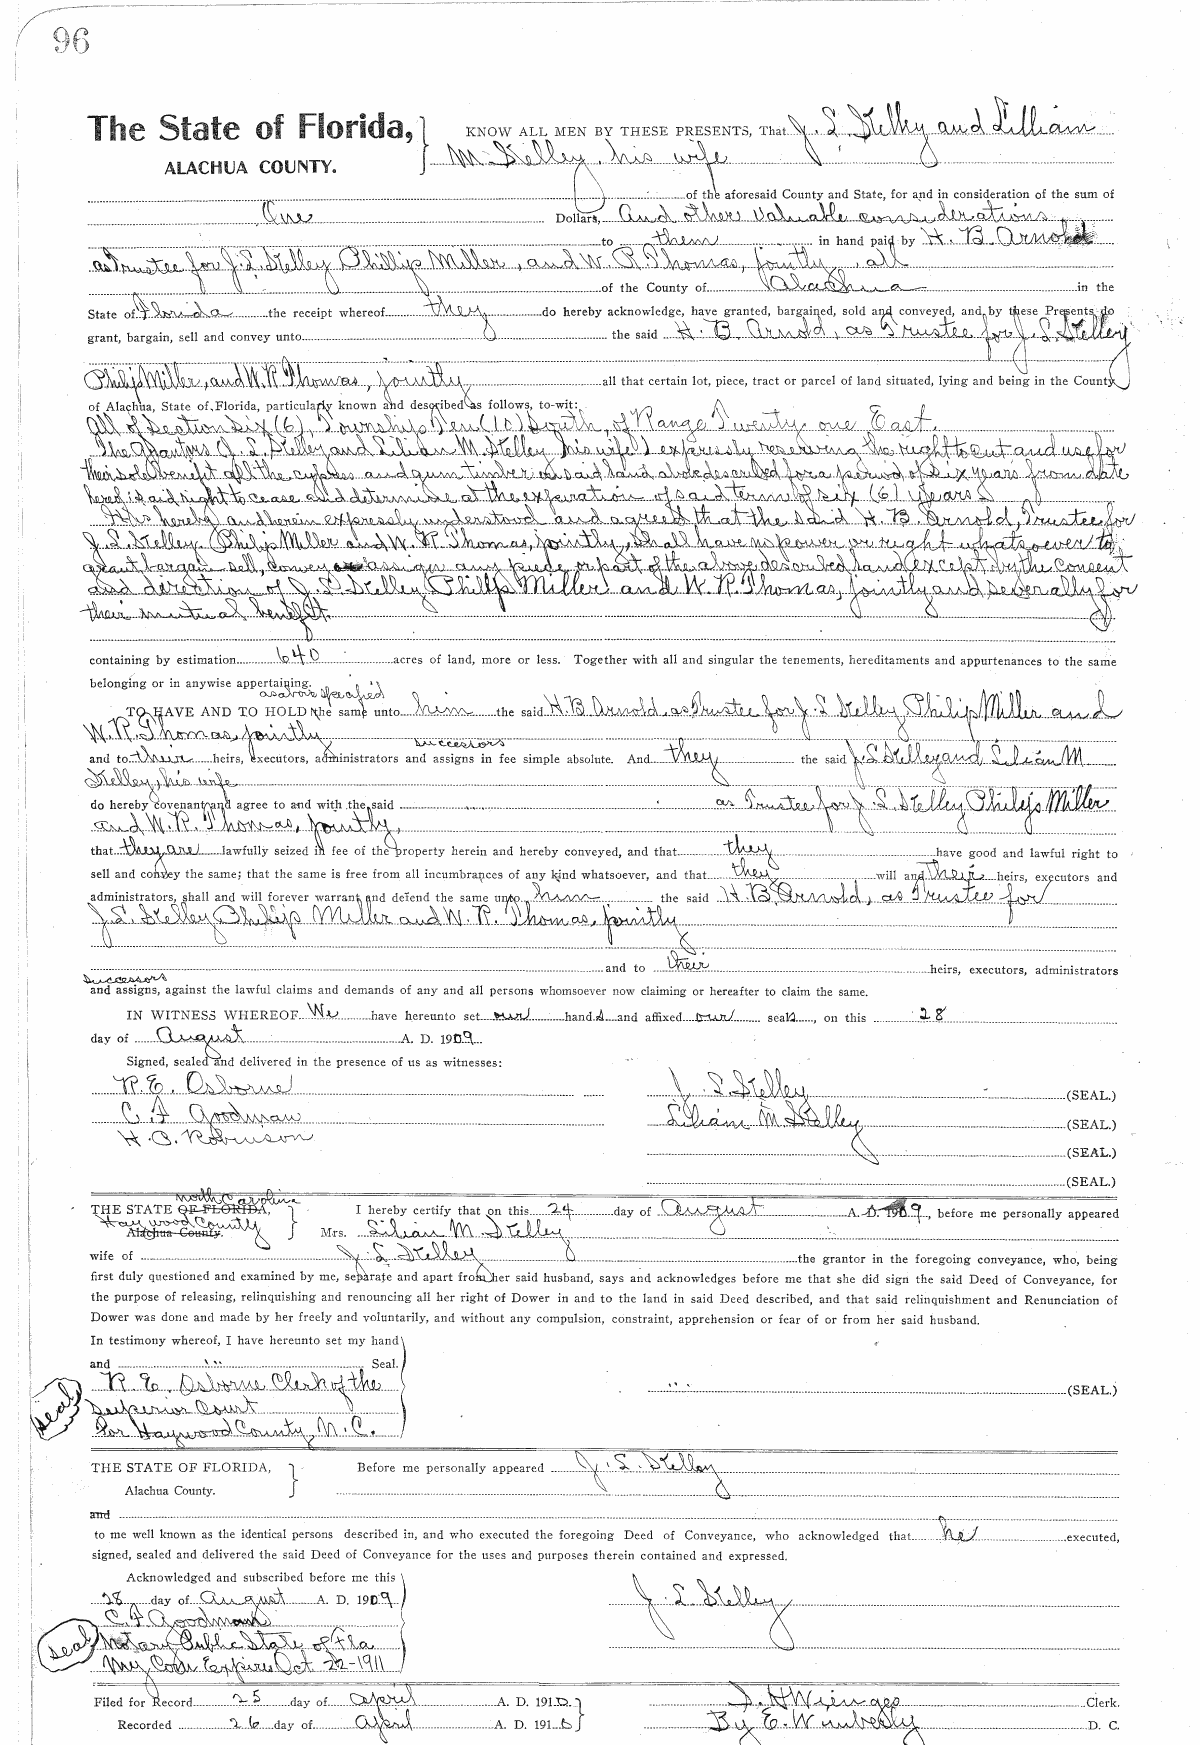 96
The State of Florida,
ALACHUA COUNTY.
KNOW ALL MEN BY THESE PRESENTS, That J. L. Kelley and Lilliam
M. Kelley, his wife
of the aforesaid County and State, for and in consideration of the sum of
One Dollars, And other valuable considerations
to them in hand paid by H. B. Arnold
as Trustee for J. L. Kelley Phillip Miller, and W. R. Thomas, jointly, all
of the County of Alachua in the
State of Florida the receipt whereof they do hereby acknowledge, have granted, bargained, sold and conveyed, and by these Presents do
grant, bargain, sell and convey unto the said H. B. Arnold, as Trustee for J. L. Kelley
Philip Miller, and W. R. Thomas, jointly all that certain lot, piece, tract or parcel of land situated, lying and being in the County
of Alachua, State of Florida, particularly known and described as follows, to-wit:
All of Section Six (6), Township Ten (10) South, of Range Twenty one East.
The Grantors J. L. Kelley and Lilian M. Kelley his wife, expressly reserving the right to cut and use for
their sole benefit all the cypress and gum timber on said land above described for a period of six years from date
hereof said right to cease and determine at the expiration of said term of six (6) years.
It is hereby and herein expressly understood and agreed that the said H. B. Arnold, Trustee for
J. L. Kelley, Philip Miller and W. R. Thomas, jointly, shall have no power or right whatsoever to
grant bargain sell, convey or assign any piece or part of the above described land except by the consent
and direction of J. L. Kelley, Phillip Miller and W. R. Thomas, jointly and severally for
their mutual benefit.
containing by estimation 640 acres of land, more or less. Together with all and singular the tenements, hereditaments and appurtenances to the same
belonging or in anywise appertaining.
as above specified
TO HAVE AND TO HOLD the same unto him the said H. B. Arnold, as Trustee for J. L. Kelley Philip Miller and
W. R. Thomas, jointly
successors
and to their heirs, executors, administrators and assigns in fee simple absolute. And they the said J. L. Kelley and Lilian M
Kelley, his wife
do hereby covenant and agree to and with the said as Trustee for J. L. Kelley Philip Miller
and W. R. Thomas, jointly,
that they are lawfully seized in fee of the property herein and hereby conveyed, and that they have good and lawful right to
sell and convey the same; that the same is free from all incumbrances of any kind whatsoever, and that they will and their heirs, executors and
administrators, shall and will forever warrant and defend the same unto him the said H. B. Arnold, as Trustee for
J. L. Kelley Philip Miller and W. R. Thomas, jointly
and to their heirs, executors, administrators
successors
and assigns, against the lawful claims and demands of any and all persons whomsoever now claiming or hereafter to claim the same.
IN WITNESS WHEREOF We have hereunto set our hands and affixed our seals, on this 28
day of August A. D. 1909.
Signed, sealed and delivered in the presence of us as witnesses:
R. E. Osborne
C. F. Goodman
H. C. Robinson
J. L. Kelley (SEAL.)
Lilian M Kelley (SEAL.)
(SEAL.)
(SEAL.)
North Carolina
THE STATE OF FLORIDA,
Haywood County
Alachua County.
I hereby certify that on this 24 day of August A. D. 1909, before me personally appeared
Mrs. Lilian M. Kelley
wife of J. L. Kelley the grantor in the foregoing conveyance, who, being
first duly questioned and examined by me, separate and apart from her said husband, says and acknowledges before me that she did sign the said Deed of Conveyance, for
the purpose of releasing, relinquishing and renouncing all her right of Dower in and to the land in said Deed described, and that said relinquishment and Renunciation of
Dower was done and made by her freely and voluntarily, and without any compulsion, constraint, apprehension or fear of or from her said husband.
In testimony whereof, I have hereunto set my hand
and Seal.
R. E. Osborne Clerk of the
Superior Court
for Haywood County, N. C.
seal
(SEAL.)
THE STATE OF FLORIDA,
Alachua County.
Before me personally appeared J. L. Kelley
and
to me well known as the identical persons described in, and who executed the foregoing Deed of Conveyance, who acknowledged that he executed,
signed, sealed and delivered the said Deed of Conveyance for the uses and purposes therein contained and expressed.
Acknowledged and subscribed before me this
28 day of August A. D. 1909
C. F. Goodman
Notary Public State of Fla
My Com Expires Oct 22-1911
seal
J. L. Kelley
Filed for Record 25 day of April A. D. 1910.
Recorded 26 day of April A. D. 1910
S. H. Wienges Clerk.
By E. Wimberly D. C.